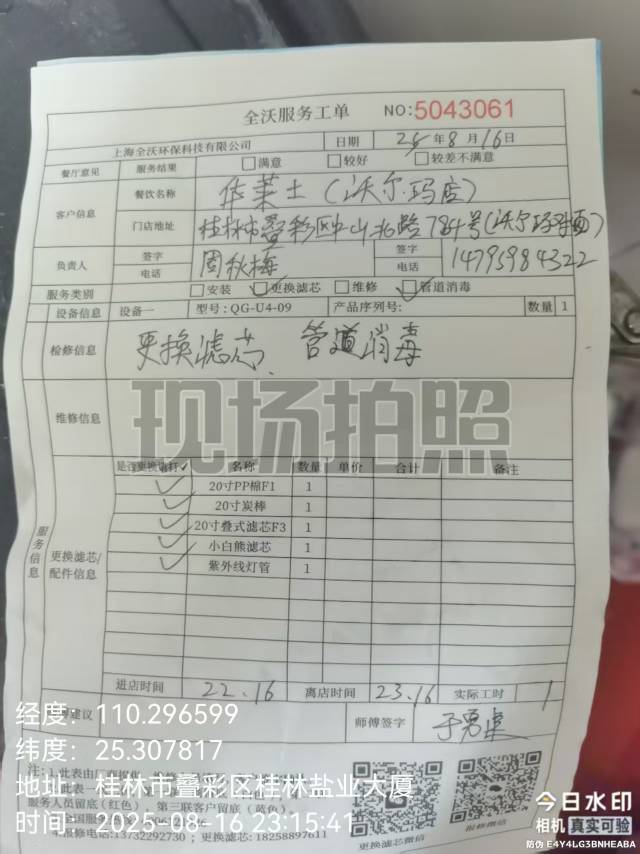 全沃服务工单 NO:5043061
上海全沃环保科技有限公司 日期 25年8月16日
餐厅意见 服务结果 满意 较好 较差不满意
客户信息 餐饮名称 华莱士(沃尔玛店)
门店地址 桂林市叠彩区中山北路784号(沃尔玛
负责人 签字 周秋梅 签字
电话 电话 14795984322
服务类别 安装 更换滤芯 维修 管道消毒
设备信息 设备一 型号:QG-U4-09 产品序列号: 数量 1
检修信息 更换滤芯、管道消毒
维修信息
现场拍照
是否更换请打✓ 名称 数量 单价 合计 备注
✓ 20寸PP棉F1 1
✓ 20寸炭棒 1
✓ 20寸叠式滤芯F3 1
✓ 小白熊滤芯 1
✓ 紫外线灯管 1
服务信息
更换滤芯/
配件信息
进店时间 22.16 离店时间 23.16 实际工时 1
建议 师傅签字
经度: 110.296599
纬度: 25.307817
地址: 桂林市叠彩区桂林盐业大厦
时间: 2025-08-16 23:15:41
注:1.此表由
服务人员留底(红色),第三联客户留底(蓝色)。
维修电话:13732292730;更换滤芯:18258897611
更换滤芯微信
报修微信
今日水印
相机 真实可验
防伪 E4Y4LG3BNHEABA